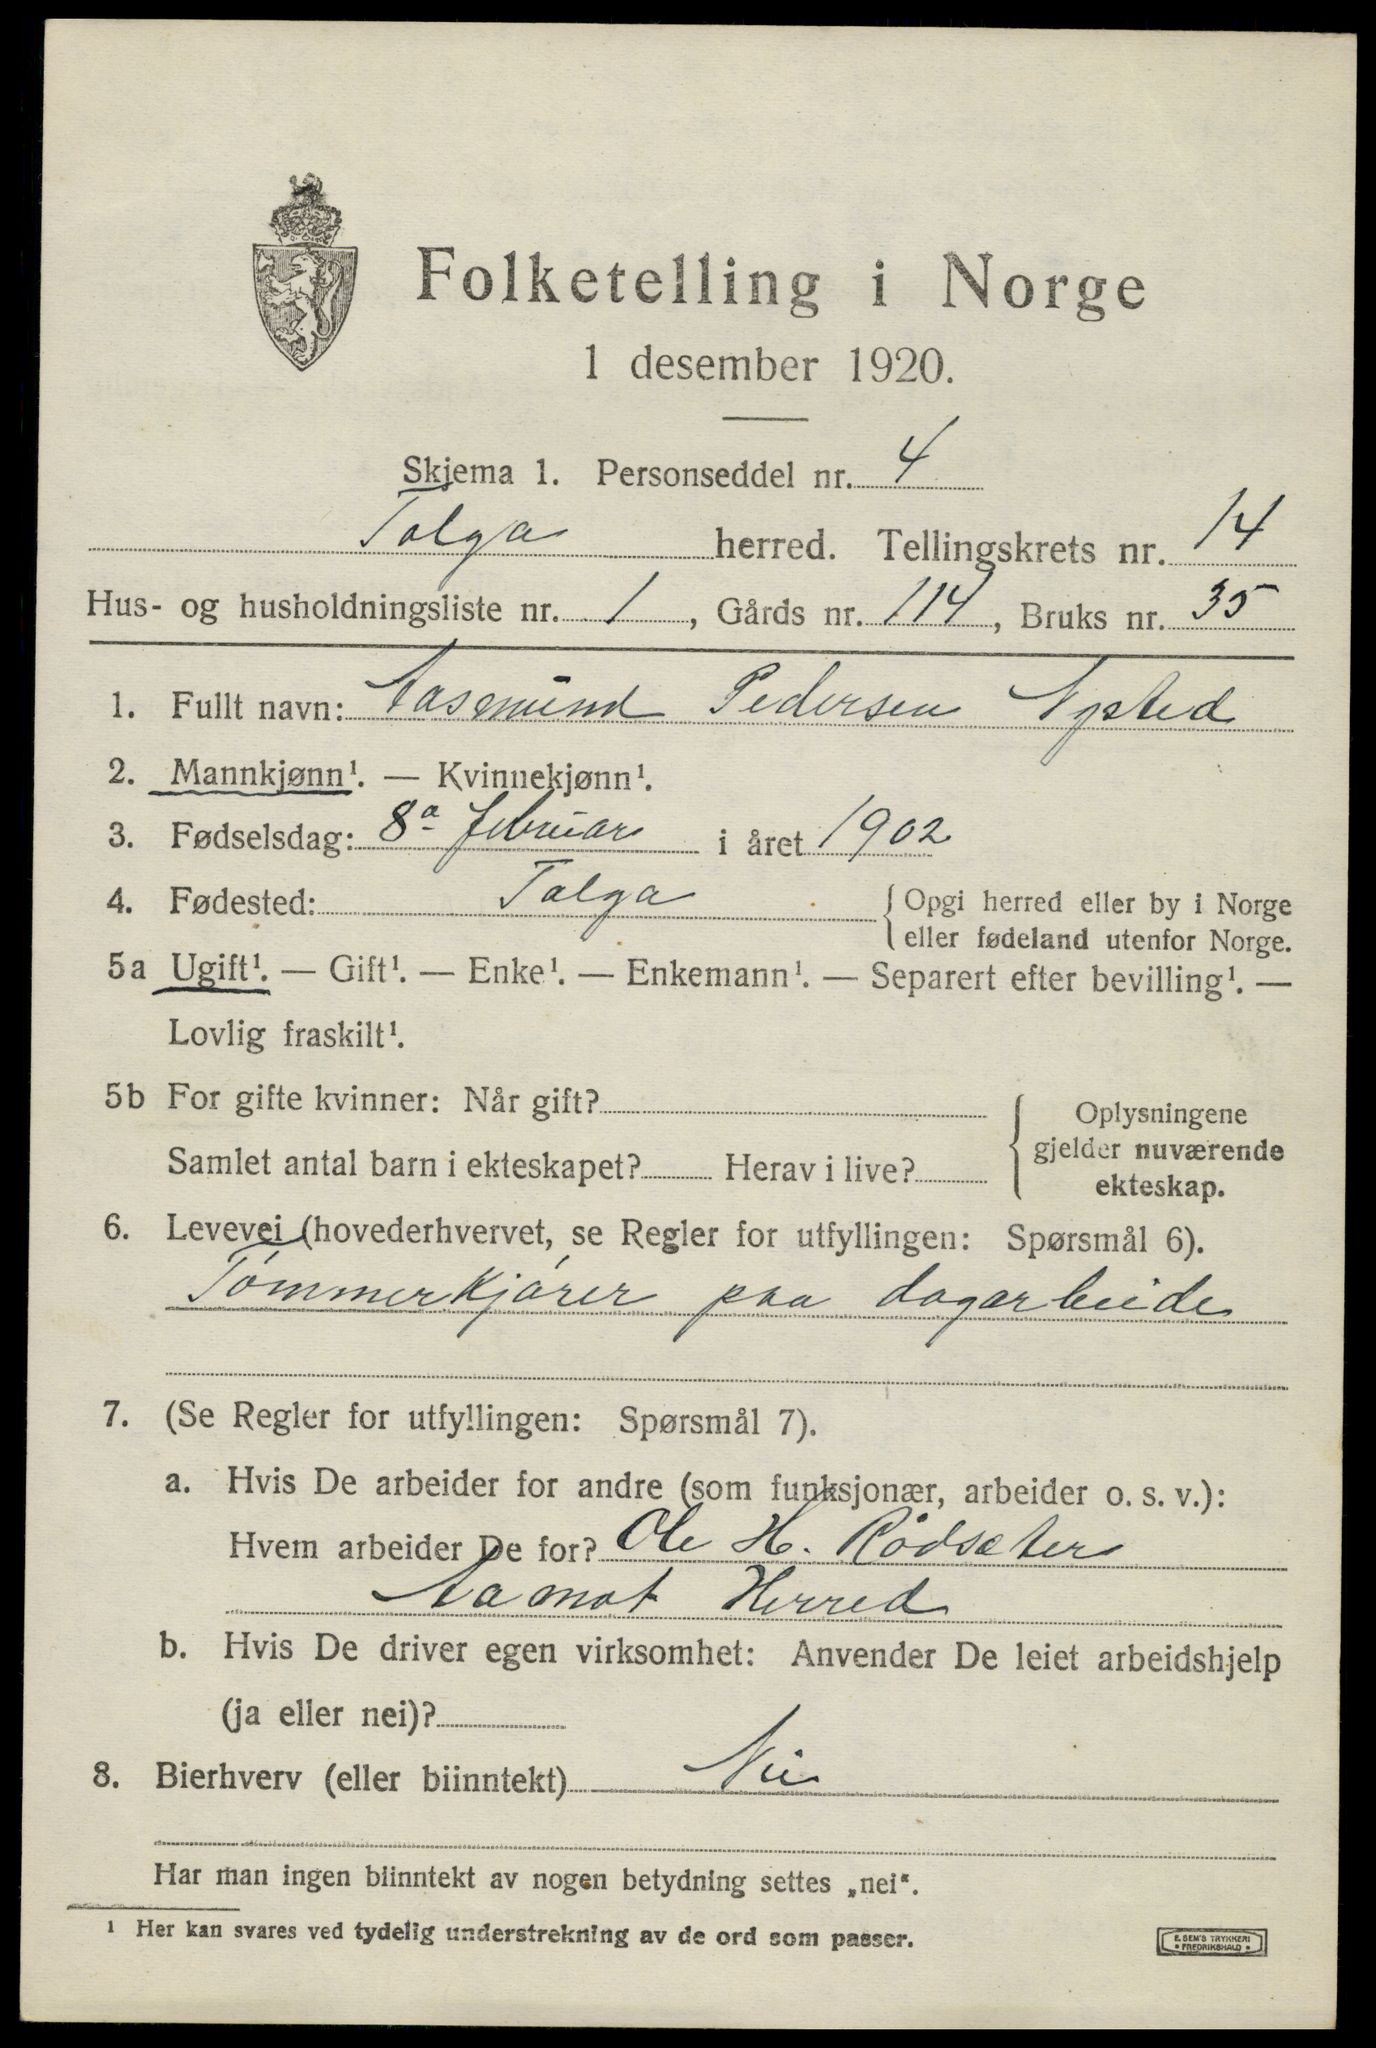 Folketelling i Norge
1 desember 1920.
Skjema 1. Personseddel nr. 4
Tolga herred. Tellingskrets nr. 14
Hus- og husholdningsliste nr. 1, Gårds nr. 114, Bruks nr. 35
1. Fullt navn: Aasmund Pedersen Nysted
2. Mannkjønn¹. — Kvinnekjønn¹.
3. Fødselsdag: 8ª februar i året 1902
4. Fødested: Tolga {Opgi herred eller by i Norge
eller fødeland utenfor Norge.
5a Ugift¹. — Gift¹. — Enke¹. — Enkemann¹. — Separert efter bevilling¹. —
Lovlig fraskilt¹.
5b For gifte kvinner: Når gift?
Samlet antal barn i ekteskapet? Herav i live?
Oplysningene
gjelder nuværende
ekteskap.
6. Levevei (hovederhvervet, se Regler for utfyllingen: Spørsmål 6).
Tømmerkjører paa dagarbeide
7. (Se Regler for utfyllingen: Spørsmål 7).
a. Hvis De arbeider for andre (som funksjonær, arbeider o. s. v.):
Hvem arbeider De for? Ole H. Rödsæter
Aamot Herred
b. Hvis De driver egen virksomhet: Anvender De leiet arbeidshjelp
(ja eller nei)?
8. Bierhverv (eller biinntekt) Nei
Har man ingen biinntekt av nogen betydning settes „nei“.
¹ Her kan svares ved tydelig understrekning av de ord som passer.
E. SEM'S TRYKKERI
• FREDRIKSHALD •